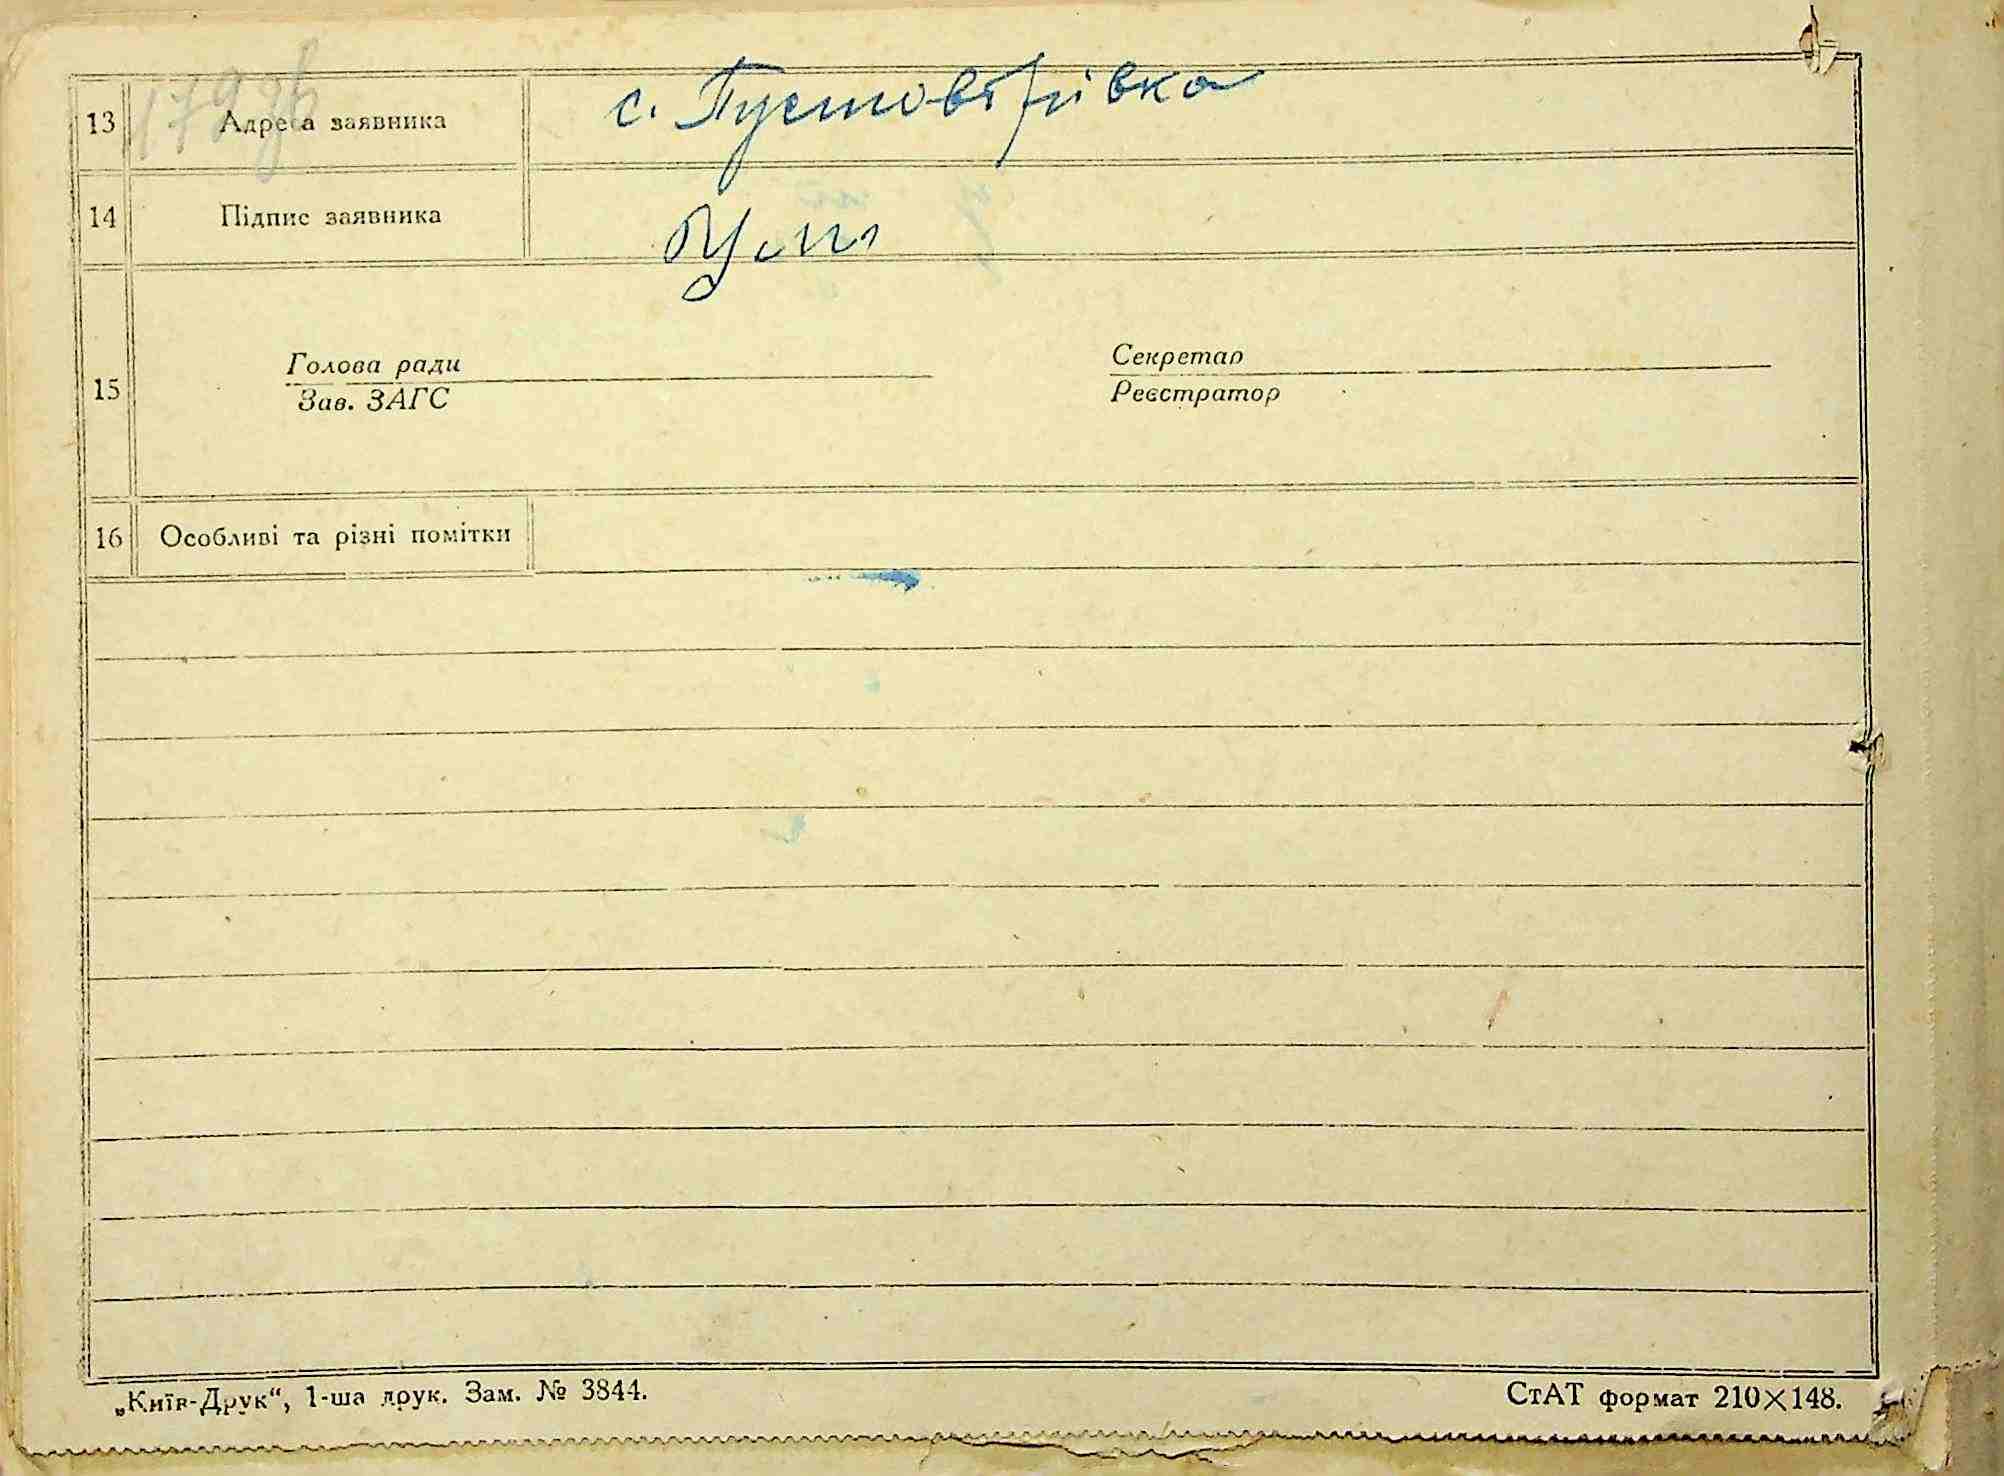 179 зв
13 Адреса заявника с. Пустоварівка
14 Підпис заявника
15 Голова ради Секретар
Зав. ЗАГС Реєстратор
16 Особливі та різні помітки
„Київ-Друк“, 1-ша друк. Зам. № 3844. СтАТ формат 210×148.